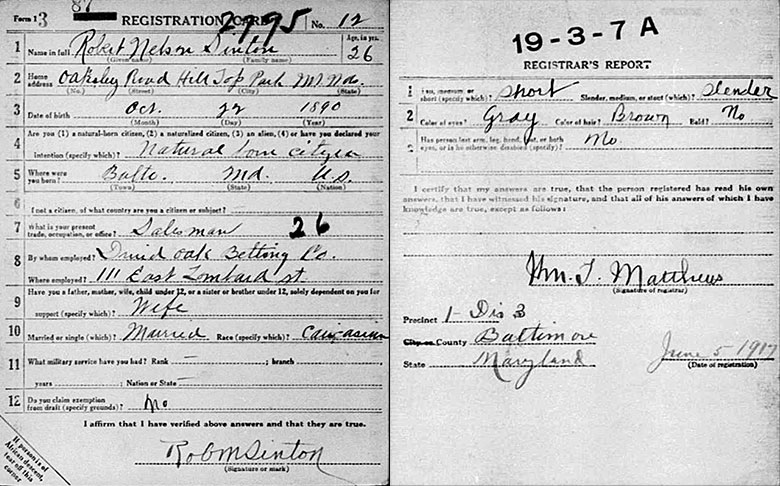 Form 1 3 87 REGISTRATION CARD 2995 No. 12
1 Name in full Robert Nelson Sinton Age, in yrs. 26
(Given name) (Family name)
2 Home address Oakley Road Hill Top Park Md.
(No.) (Street) (City) (State)
3 Date of birth Oct. 22 1890
(Month) (Day) (Year)
4 Are you (1) a natural-born citizen, (2) a naturalized citizen, (3) an alien, (4) or have you declared your
intention (specify which)? Natural born citizen
5 Where were you born? Balto. Md. U.S.
(Town) (State) (Nation)
6 If not a citizen, of what country are you a citizen or subject?
7 What is your present trade, occupation, or office? Salesman 26
8 By whom employed? Druid Oak Belting Co.
Where employed? 111 East Lombard st.
9 Have you a father, mother, wife, child under 12, or a sister or brother under 12, solely dependent on you for
support (specify which)? Wife
10 Married or single (which)? Married Race (specify which)? Caucasian
11 What military service have you had? Rank — ; branch
years ; Nation or State —
12 Do you claim exemption from draft (specify grounds)? No
I affirm that I have verified above answers and that they are true.
Robt N Sinton
(Signature or mark)
If person is of
African descent,
tear off this
corner
19-3-7 A
REGISTRAR'S REPORT
1 Tall, medium, or short (specify which)? Short Slender, medium, or stout (which)? Slender
2 Color of eyes? Gray Color of hair? Brown Bald? No
3 Has person lost arm, leg, hand, foot, or both
eyes, or is he otherwise disabled (specify)? No.
I certify that my answers are true, that the person registered has read his own
answers, that I have witnessed his signature, and that all of his answers of which I have
knowledge are true, except as follows:
Wm. T. Matthews
(Signature of registrar)
Precinct 1- Dis 3
City or County Baltimore
State Maryland June 5 1917
(Date of registration)